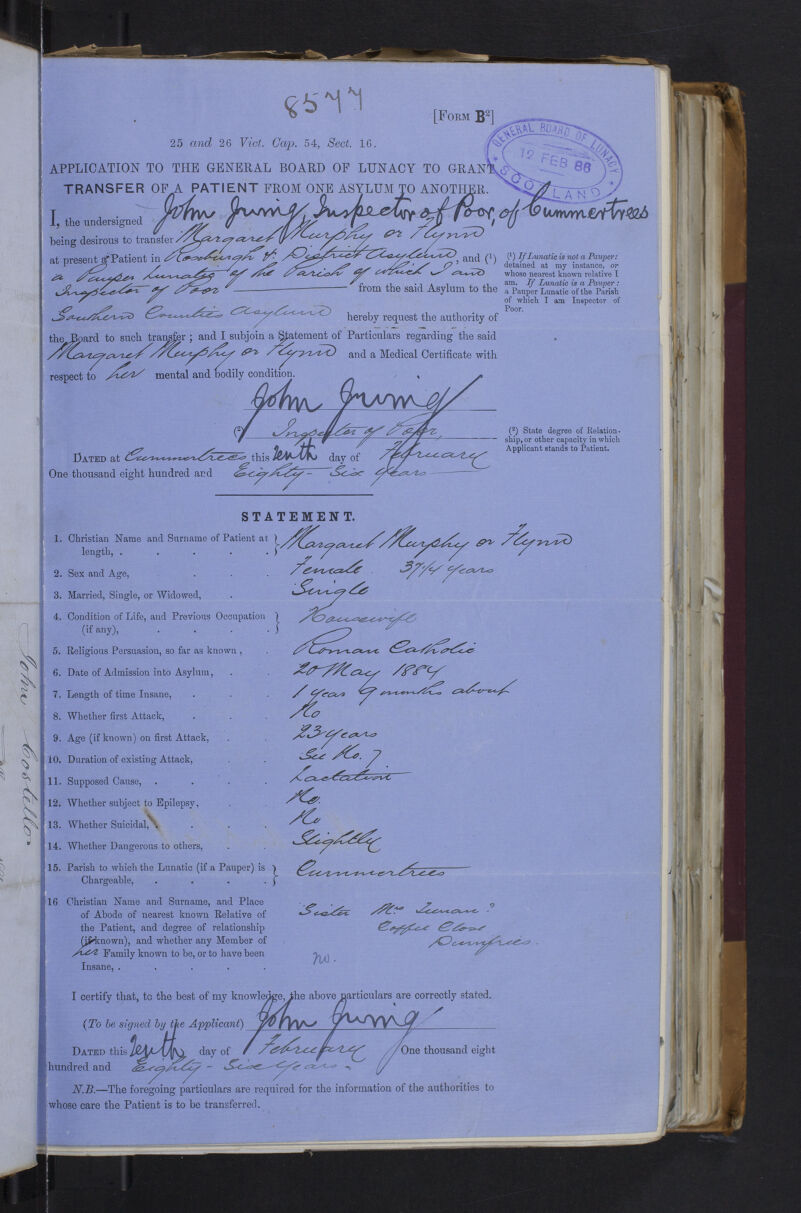 8577
[FORM B²]
GENERAL BOARD OF LUNACY
12 FEB 86
SCOTLAND
25 and 26 Vict. Cap. 54, Sect. 16.
APPLICATION TO THE GENERAL BOARD OF LUNACY TO GRANT
TRANSFER OF A PATIENT FROM ONE ASYLUM TO ANOTHER.
I, the undersigned John Irving, Inspector of Poor, of Cummertrees
being desirous to transfer Margaret Murphy or Flynn
at present a Patient in Roxburgh &c District Asylum, and (¹)
a Pauper Lunatic of the Parish of which I am
Inspector of Poor from the said Asylum to the
Southern Counties Asylum hereby request the authority of
the Board to such transfer; and I subjoin a Statement of Particulars regarding the said
Margaret Murphy or Flynn and a Medical Certificate with
respect to her mental and bodily condition.
(¹) If Lunatic is not a Pauper:
detained at my instance, or
whose nearest known relative I
am. If Lunatic is a Pauper:
a Pauper Lunatic of the Parish
of which I am Inspector of
Poor.
John Irving
(²) Inspector of Poor,
(²) State degree of Relation-
ship, or other capacity in which
Applicant stands to Patient.
DATED at Cummertrees this Tenth day of February
One thousand eight hundred and Eighty-Six years
STATEMENT.
1. Christian Name and Surname of Patient at
length, . . . . . Margaret Murphy or Flynn
2. Sex and Age, . . . Female. 37 1/4 years
3. Married, Single, or Widowed, . Single
4. Condition of Life, and Previous Occupation
(if any), . . . . Housewife
5. Religious Persuasion, so far as known, . Roman Catholic
6. Date of Admission into Asylum, . . 20 May 1884
7. Length of time Insane, . . . 1 year 9 months about
8. Whether first Attack, . . . No
9. Age (if known) on first Attack, . . 23 years
10. Duration of existing Attack, . . See No. 7
11. Supposed Cause, . . . . Lactation
12. Whether subject to Epilepsy, . . No.
13. Whether Suicidal, . . . . No
14. Whether Dangerous to others, . . Slightly
15. Parish to which the Lunatic (if a Pauper) is
Chargeable, . . . . Cummertrees
16 Christian Name and Surname, and Place
of Abode of nearest known Relative of
the Patient, and degree of relationship
(if known), and whether any Member of
her Family known to be, or to have been
Insane, . . . . .
Sister Mrs
Coffee Close
Dumfries.
no.
I certify that, to the best of my knowledge, the above particulars are correctly stated.
(To be signed by the Applicant) John Irving
DATED this Tenth day of February One thousand eight
hundred and Eighty-Six years.
N.B.—The foregoing particulars are required for the information of the authorities to
whose care the Patient is to be transferred.
John Costello